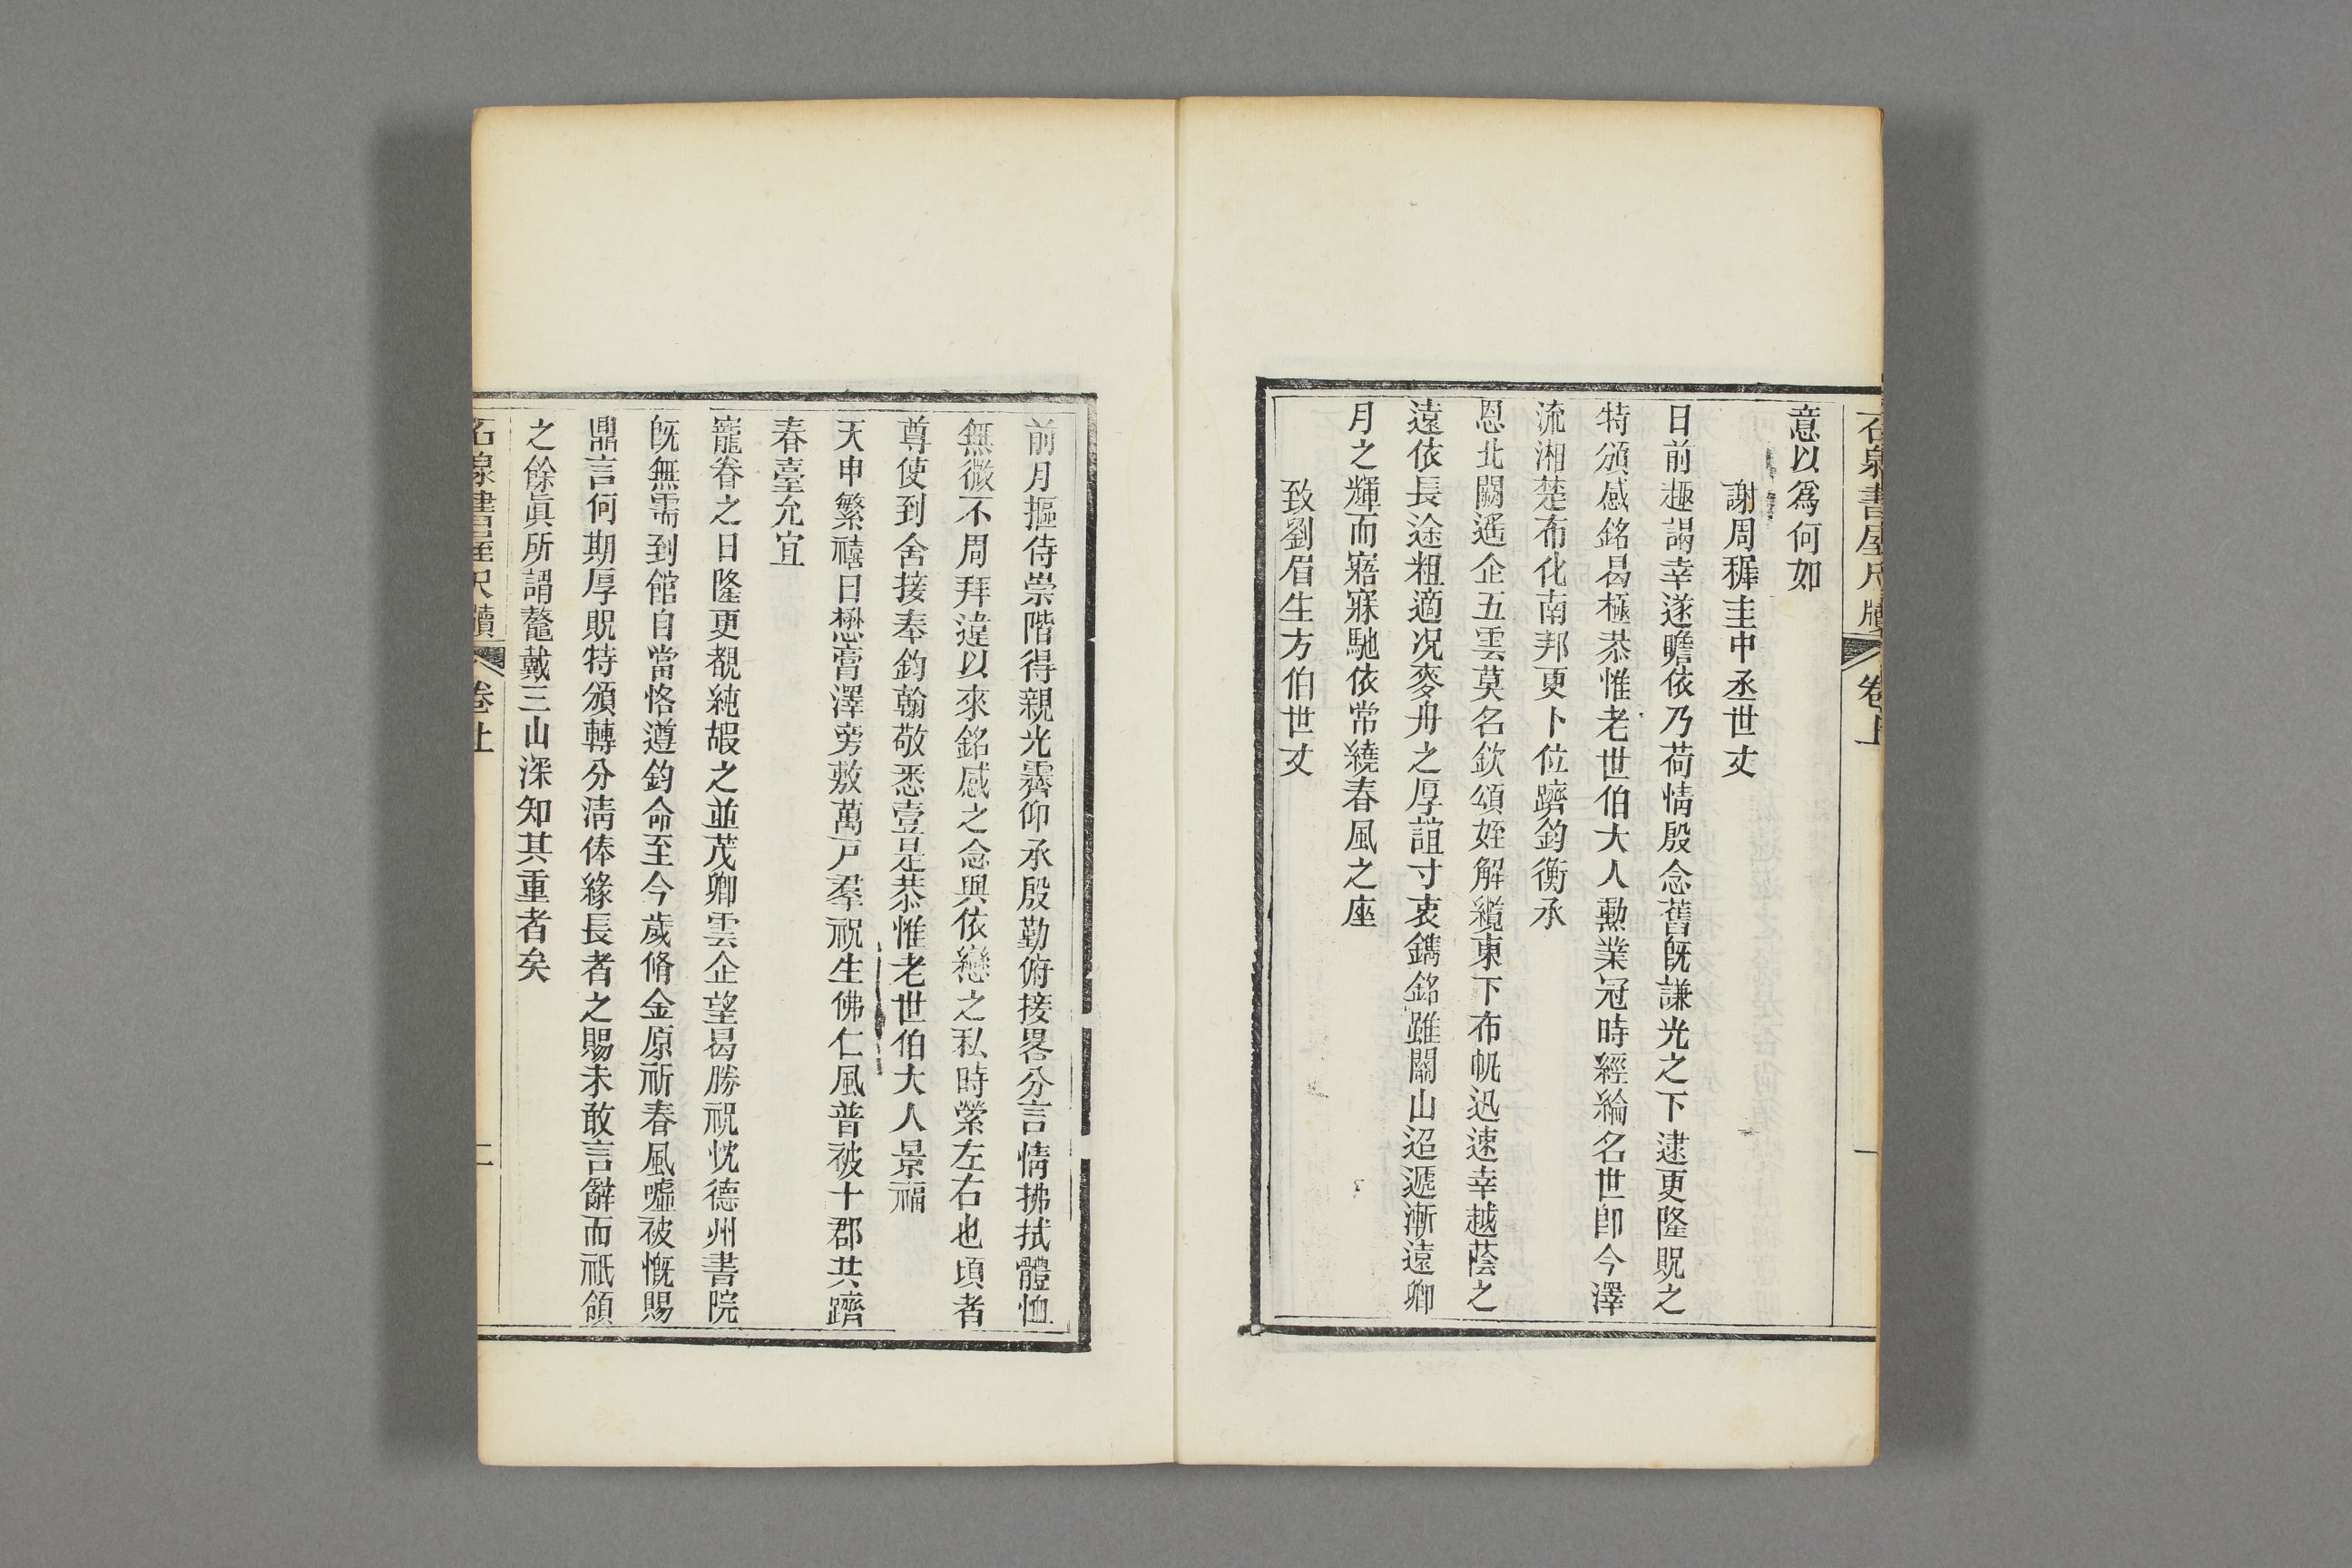 石泉書屋尺牘
卷上
一
意以爲何如
謝周穉圭中丞世丈
日前趣謁幸遂瞻依乃荷情殷念舊旣謙光之下逮更隆貺之
特頒感銘曷極恭惟老世伯大人勳業冠時經綸名世卽今澤
流湘楚布化南邦更卜位躋鈞衡承
恩北闕遙企五雲莫名欽頌姪解纜東下布帆迅速幸越蔭之
遠依長途粗適况麥舟之厚誼寸衷鐫銘雖關山迢遞漸遠卿
月之輝而寤寐馳依常繞春風之座
致劉眉生方伯世丈
前月摳侍崇階得親光霽仰承殷勤俯接畧分言情拂拭體恤
無微不周拜違以來銘感之念與依戀之私時縈左右也頃者
尊使到舍接奉鈞翰敬悉壹是恭惟老世伯大人景福
天申繁禧日懋膏澤旁敷萬戸羣祝生佛仁風普被十郡共躋
春臺允宜
寵眷之日隆更覩純嘏之並茂卿雲企望曷勝祝忱德州書院
旣無需到館自當恪遵鈞命至今歲脩金原祈春風噓被慨賜
鼎言何期厚貺特頒轉分淸俸緣長者之賜未敢言辭而祗領
之餘眞所謂鼇戴三山深知其重者矣
石泉書屋尺牘
卷上
二